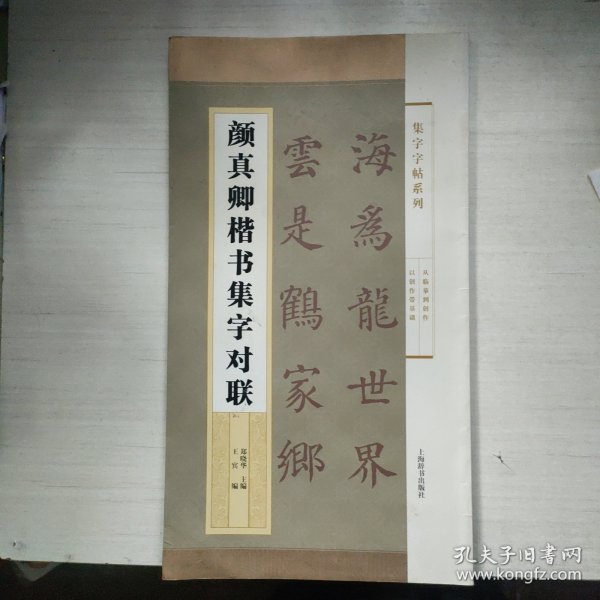 集字字帖系列
从临摹到创作
以创作带基础
海為龍世界
雲是鶴家鄉
颜真卿楷书集字对联
郑晓华 主编
王宾 编
上海辞书出版社
孔夫子旧书网
www.kongfz.com